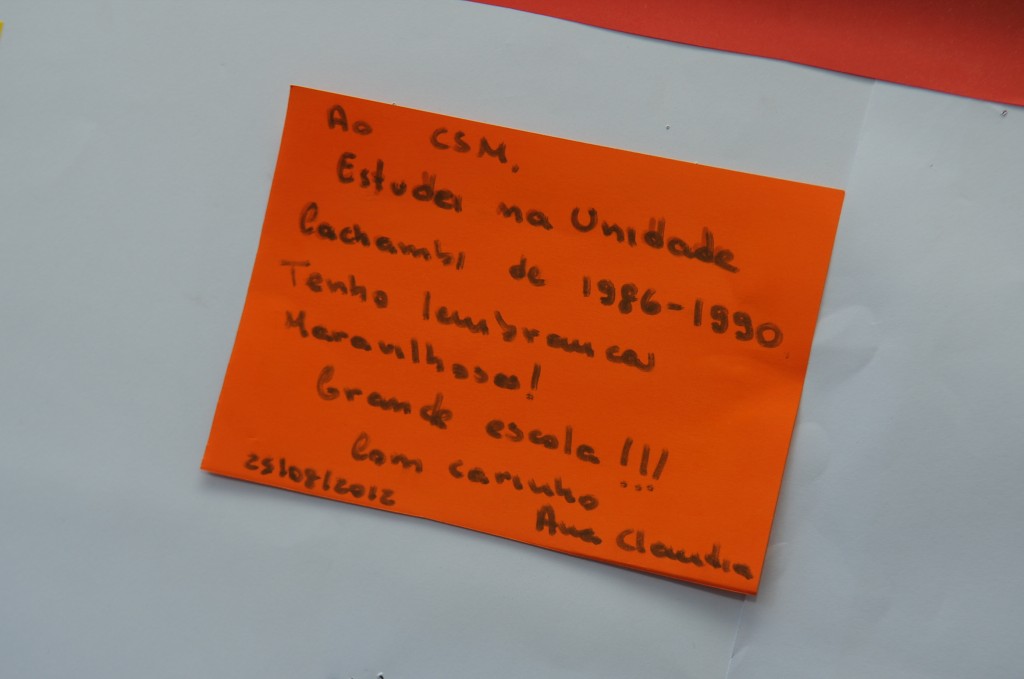 Ao CSM,
Estudei na Unidade
Cachambi de 1986-1990.
Tenho lembranças
Maravilhosas!
Grande escola!!!
Com carinho
25/08/2012
Ana Claudia